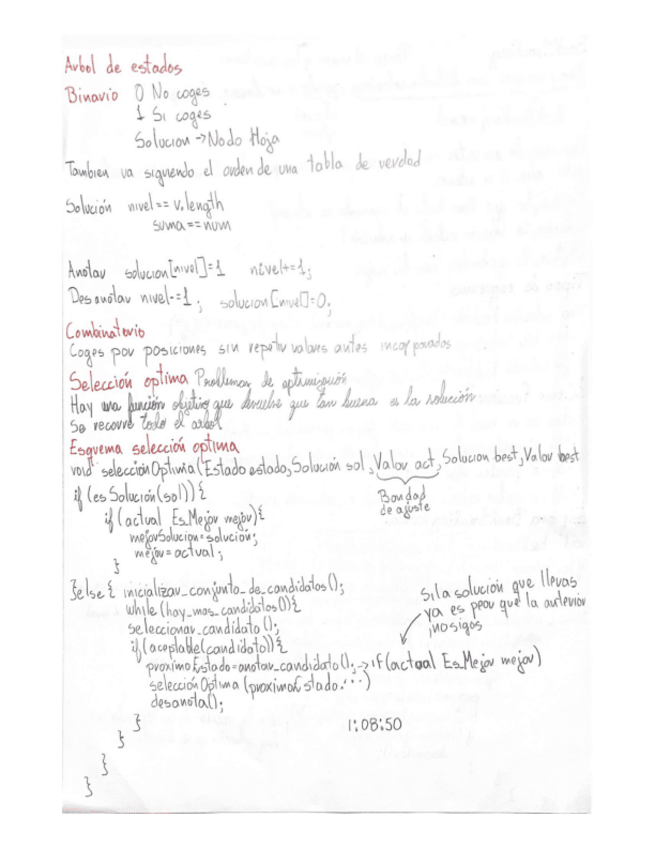 Arbol de estados
Binario 0 No coges
1 Si coges
Solucion -> Nodo Hoja
Tambien va siguiendo el orden de una tabla de verdad
Solución nivel == v.length
suma == num
Anotar solucion[nivel]=1 nivel+=1;
Desanotar nivel-=1; solucion[nivel]=0;
Combinatorio
Coges por posiciones sin repetir valores antes incorporados
Selección optima Problemas de optimización
Hay una función objetivo que devuelve que tan buena es la solución
Se recorre todo el arbol
Esquema selección optima
void selecciónOptima(Estado estado, Solución sol, Valor act, Solucion best, Valor best
Bondad
de ajuste
if (es Solución(sol)) {
if (actual Es_Mejor mejor){
mejorSolucion=solucion;
mejor=actual;
}
}else{ inicializar_conjunto_de_candidatos();
while(hay_mas_candidatos()){
seleccionar_candidato();
if(aceptable(candidato)){
proximoEstado=anotar_candidato(); -> if(actual Es_Mejor mejor)
Si la solución que llevas
ya es peor que la anterior
,no sigas
selecciónOptima (proximoEstado...)
desanota();
}
1:08:50
}
}
}